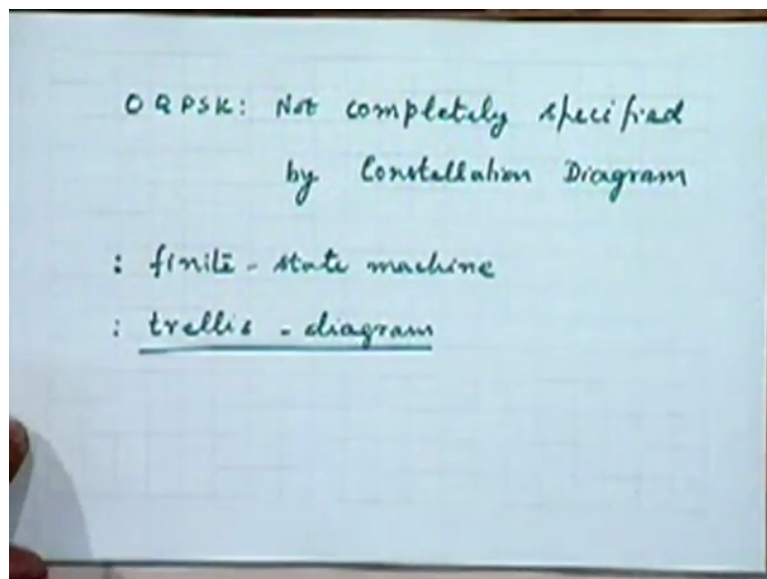 OQPSK: Not completely specified
by Constellation Diagram
: finite - state machine
: trellis - diagram